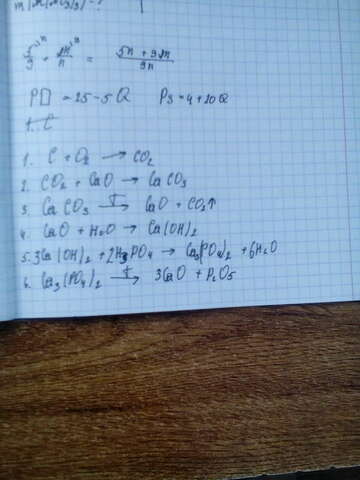 5/9 + m/n = 5n + 9m / 9n
PD = 25-5Q P3 = 4+20Q
1. C
1. C + O2 → CO2
2. CO2 + CaO → CaCO3
3. CaCO3 →T CaO + CO2↑
4. CaO + H2O → Ca(OH)2
5. 3Ca(OH)2 + 2H3PO4 → Ca3(PO4)2 + 6H2O
6. Ca3(PO4)2 →t 3CaO + P2O5